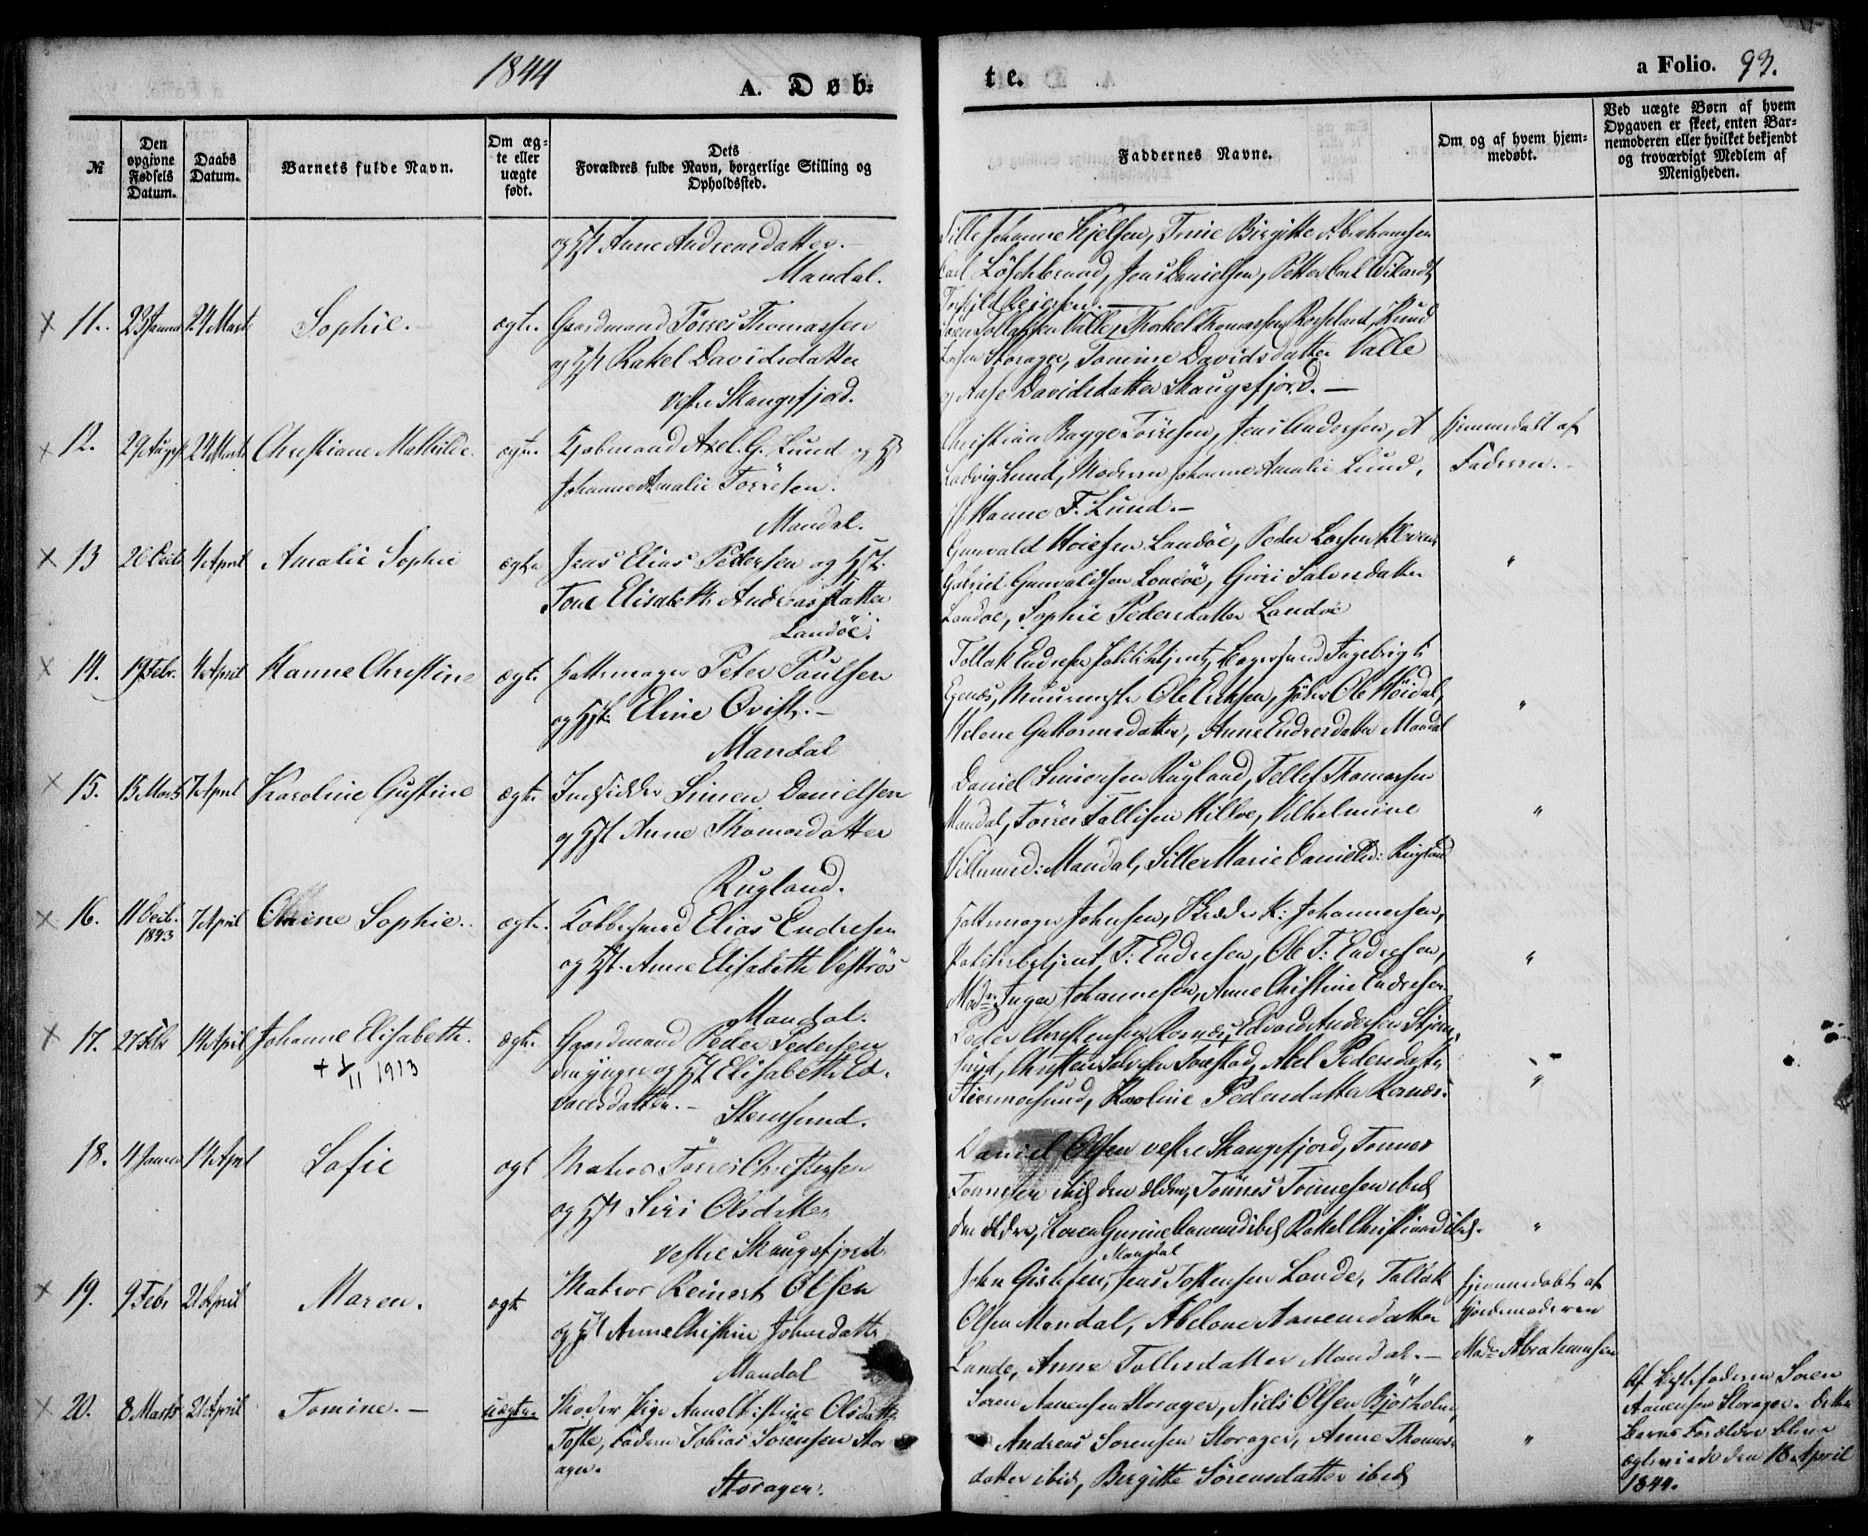 1844
A. Døb=
te.
a Folio. 93.
№
Den opgivne Fødsels Datum.
Daabs Datum.
Barnets fulde Navn.
Om ægte eller uægte født.
Dets Forældres fulde Navn, borgerlige Stilling og Opholdssted.
Faddernes Navne.
Om og af hvem hjemmedøbt.
Ved uægte Børn af hvem Opgaven er skeet, enten Barnemoderen eller hvilket bekjendt og troværdigt Medlem af Menigheden.
og Hst Anne Andreasdatter.
Mandal.
Sille Johanne Kjelsen, Trine Birgitte Abrahamsen
Jens Danielsen, Petter Carl
11. 23 Januar 24 Marts Sophie. ægte. Gaardmand Törres Thomassen
og Hst Rakel Davidsdatter
Vestre Skaugsfjord.
Valle, Thorkel Thomassen Roseland, Knud
Storager, Tomine Davidsdatter Valle
og Aase Davidsdatter Skaugsfjord.
12. 24 Marts Christiane Mathilde. ægte. Kjøbmand Axel G. Lund og Hst
Johanne Amalie Törresen.
Mandal.
Christian Bagge Törresen, Jens Andersen, A
Ludvig Lund, Moderen Johanne Amalie Lund,
Hanne F. Lund.
hjemmedøbt af
Faderen.
13 4 April Amalie Sophie ægte Jens Elias Pedersen og Hst.
Tone Elisabeth Andreasdatter
Landöe.
Gunvald Landöe, Peder Larsen
Gabriel Gunvaldsen Landöe, Giøri Salvesdatter
Landöe, Sophie Pedersdatter Landöe
"
14. 19 Febr. 4 April Hanne Christine ægte. Hattemager Peter Paulsen
og Hst. Eline Qvist.
Mandal
Tollak Endresen Politibetjent, Ingebrigt
Egenæs, Muurmester Ole Eriksen, Ole Høidal,
Helene Guttormsdatter, Anne Endresdatter Mandal
"
15. 15 Marts 7 April Karoline Gustine ægte. Indsidder Simen Danielsen
og Hst Anne Thomasdatter
Rugland.
Daniel Simensen Rugland, Tellef Thomassen
Mandal, Törres Tallisen Hille, Vilhelmine
Villumsd: Mandal, Sille Marie Danielsd: Rugland
"
16. 11 Decb. 1843 7 April Sophie. ægte. Kobbersmed Elias Endresen
og Hst. Anne Elisabeth
Mandal.
Hattemager Johnsen, Skræder K: Johannesen,
Politibetjent T: Endresen, Ole T: Endresen,
Mad. Inger Johannesen, Anne Christine Endresen
"
17. 27 Feb 14 April Johanne Elisabeth. ægte. Gaardmand Peder Pedersen
+ 1/11 1913
den yngre og Hst Elisabeth Ed-
vardsdatter.
Stemsund.
Peder Christensen Risnæs, Edvard Andersen Stjern-
sund, Christen Salvesen Abel Pedersdatter
Stjernesund, Karoline Pedersdatter Risnæs.
"
18. 4 Januar 14 April Sofie ægt Matros Törres Christensen
og Hst Siri Olsdatter
Vestre Skaugsfjord
Daniel Olsen vestre Skaugsfjord, Tönnes
Tönnesen ibid den ældre, Tönnes Tönnesen ibid
den ældre, Karen Gurine ibid Rakel Christiansd ibid.
"
19. 9 Febr 21 April Maren. ægte Matros Reinert Olsen
og Hst Anne Christine Johnsdatter
Mandal
John Gislesen, Mandal Jens Tostensen Lande, Tallak
Olsen Mandal, Abelone Aanensdatter
Lande, Anne Tollisdatter Mandal.
hjemmedøbt af
Gjordemoderen
Mad. Abrahamsen
20. 8 Marts 21 April Tomine. uægte. Moder Pige Anne Christine Olsdatter
Foste, Fader Tobias Sørensen Stor
ager.
Storager.
Søren Aanensen Storager, Niels Olsen Bjørkholm,
Andreas Sørensen Storager, Anne Thomas-
datter ibid, Birgitte Sørensdatter ibid
"
Af Bestefaderen Søren
Aanensen Storager. Dette
Barns Forældre bleve
ægteviede den 18 April
1844.